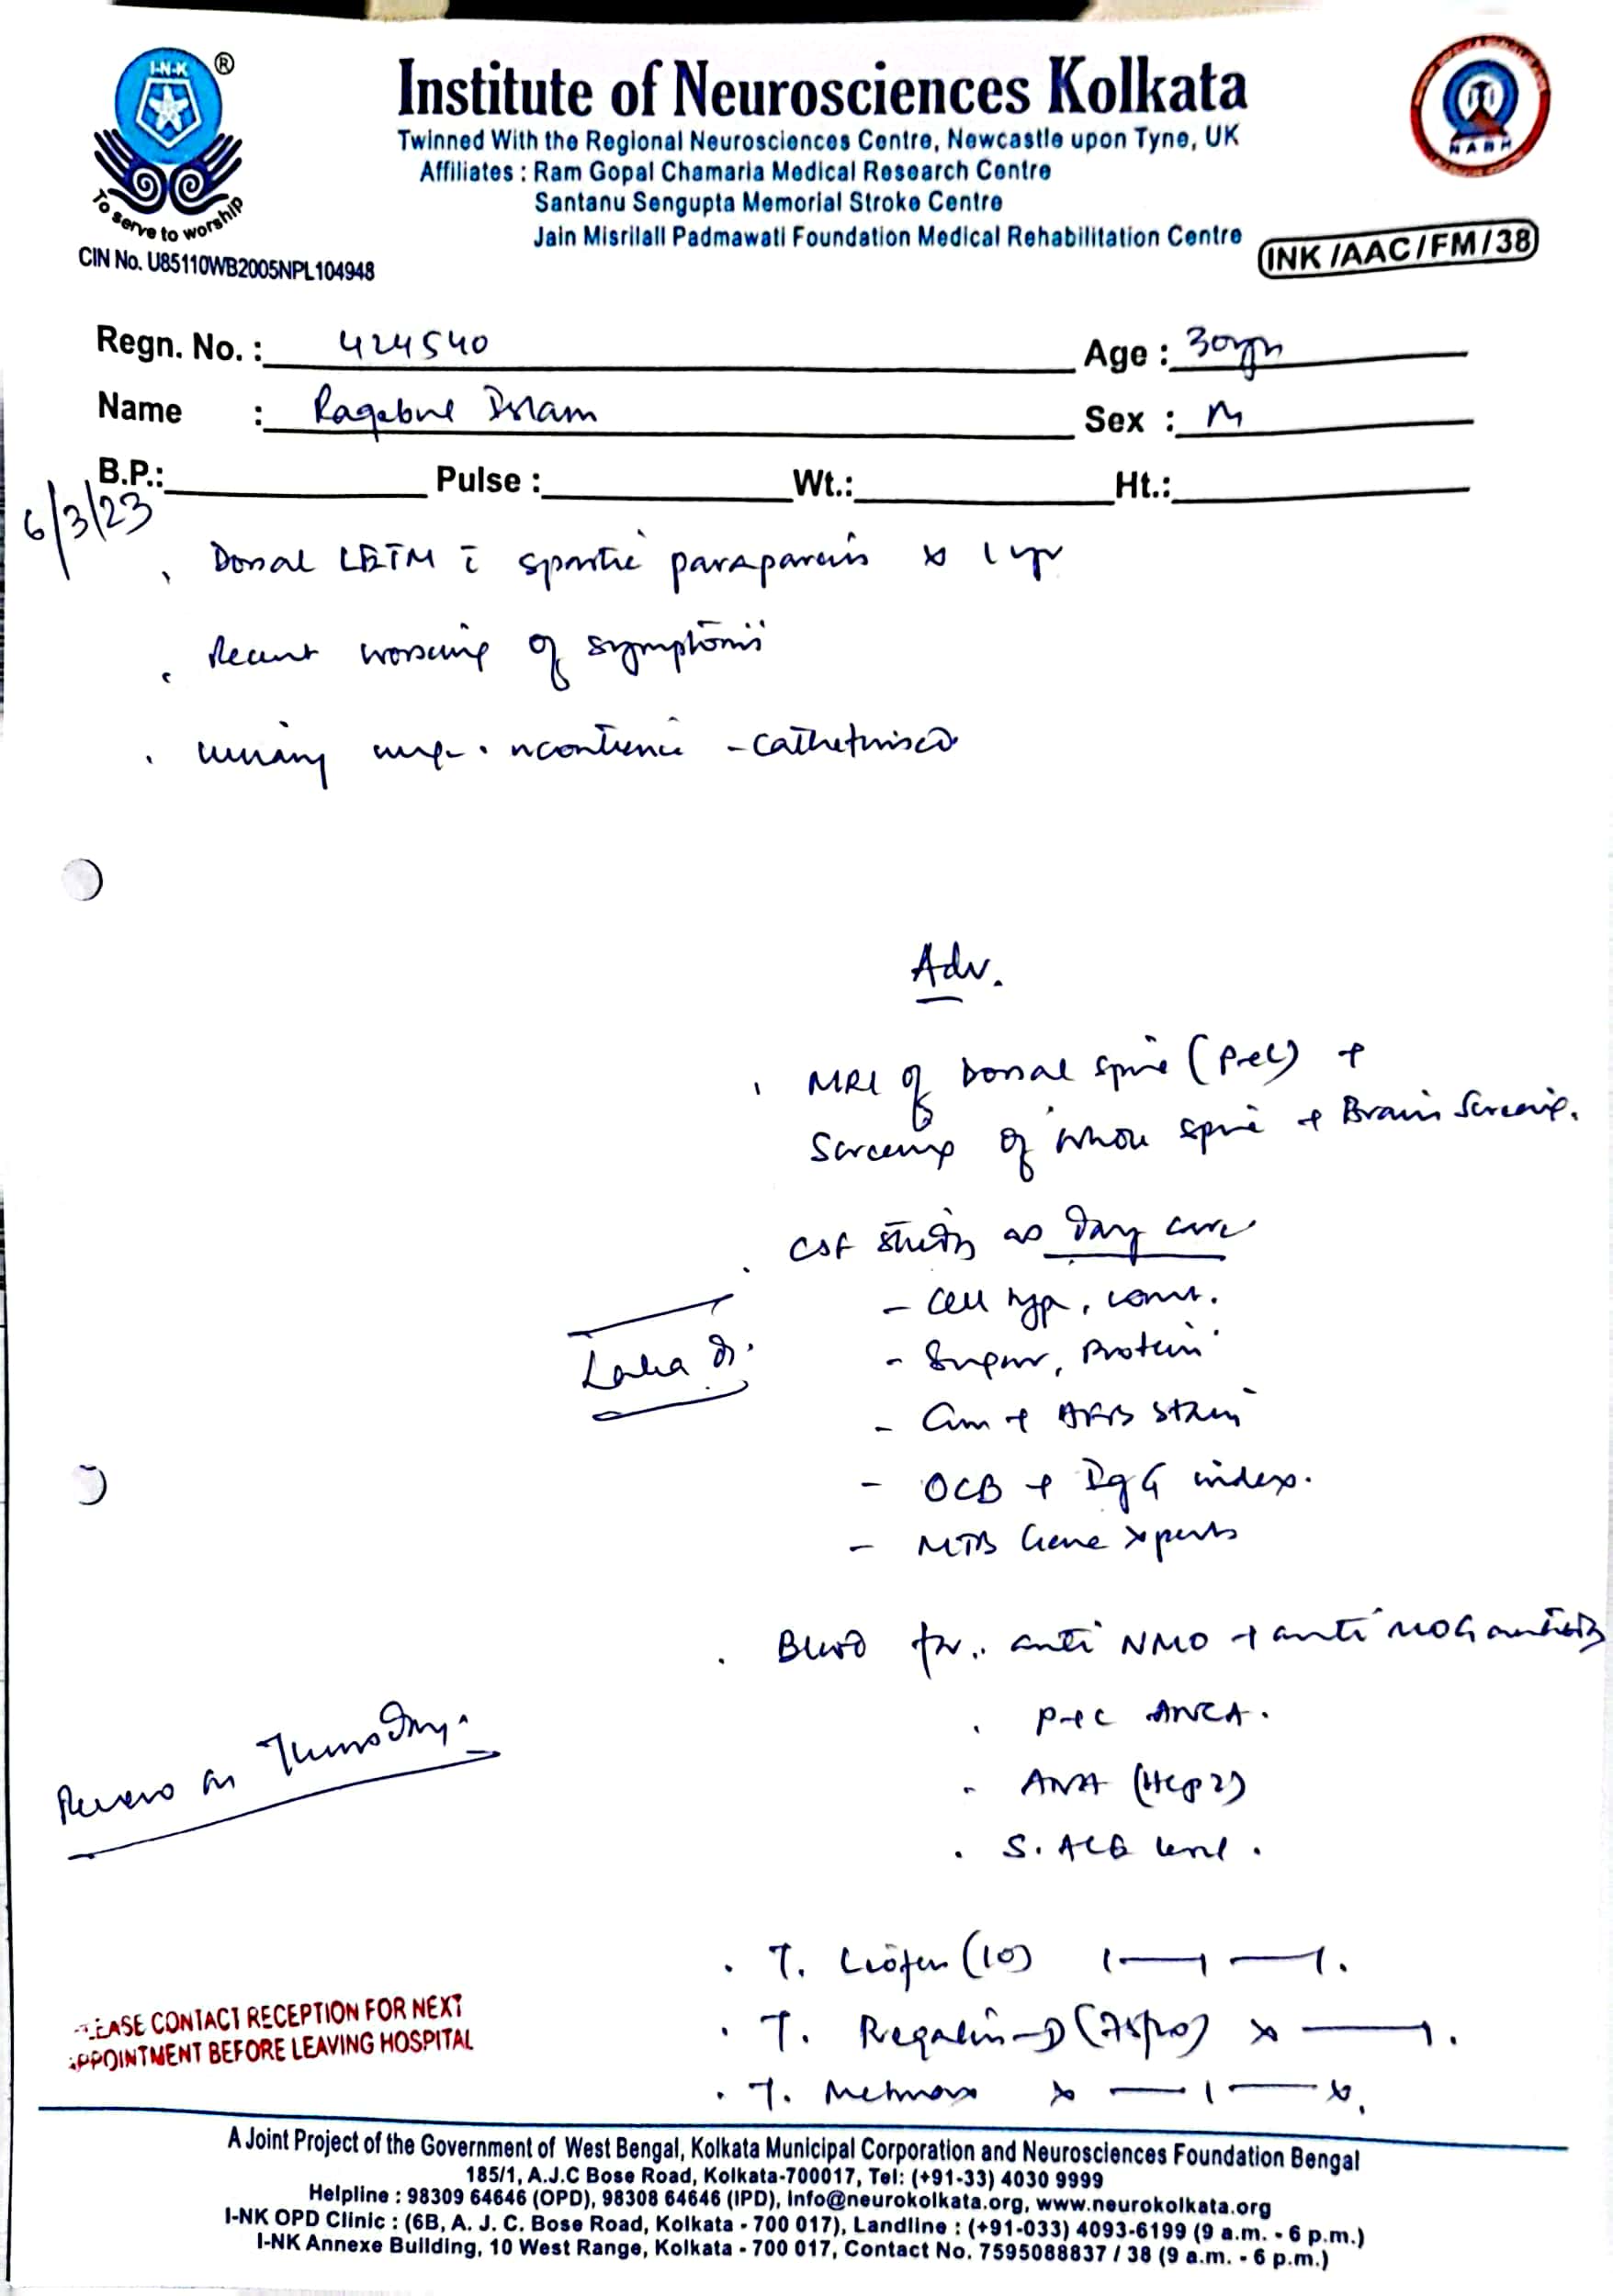 I-N-K ®
To serve to worship
CIN No. U85110WB2005NPL104948
Institute of Neurosciences Kolkata
Twinned With the Regional Neurosciences Centre, Newcastle upon Tyne, UK
Affiliates : Ram Gopal Chamaria Medical Research Centre
Santanu Sengupta Memorial Stroke Centre
Jain Misrilall Padmawati Foundation Medical Rehabilitation Centre
NABH
INK /AAC/FM/38
Regn. No. : 424540 Age : 30yrs
Name : Ragebul Islam Sex : M
B.P.: Pulse : Wt.: Ht.:
6/3/23
Dorsal LETM c̄ spastic paraparesis x 1 yr
Recent worsening of symptoms
urinary urge incontinence - catheterised
Adv.
MRI of Dorsal spine (P+C) +
Screening of whole spine + Brain Screening.
CSF study as Day care
- Cell type, count.
- Sugar, Protein
- Gram + AFB stain
- OCB + IgG index.
- MTB Gene xperts
Blood for.. anti NMO + anti MOG antibody
P+C ANCA.
ANA (Hep2)
S. ACE level.
Review on Thursday.
T. Liofen (10) 1—1—1.
T. Regalin-D (75/20) x —— 1.
T. x — 1 — x.
PLEASE CONTACT RECEPTION FOR NEXT
APPOINTMENT BEFORE LEAVING HOSPITAL
A Joint Project of the Government of West Bengal, Kolkata Municipal Corporation and Neurosciences Foundation Bengal
185/1, A.J.C Bose Road, Kolkata-700017, Tel: (+91-33) 4030 9999
Helpline : 98309 64646 (OPD), 98308 64646 (IPD), Info@neurokolkata.org, www.neurokolkata.org
I-NK OPD Clinic : (6B, A. J. C. Bose Road, Kolkata - 700 017), Landline : (+91-033) 4093-6199 (9 a.m. - 6 p.m.)
I-NK Annexe Building, 10 West Range, Kolkata - 700 017, Contact No. 7595088837 / 38 (9 a.m. - 6 p.m.)